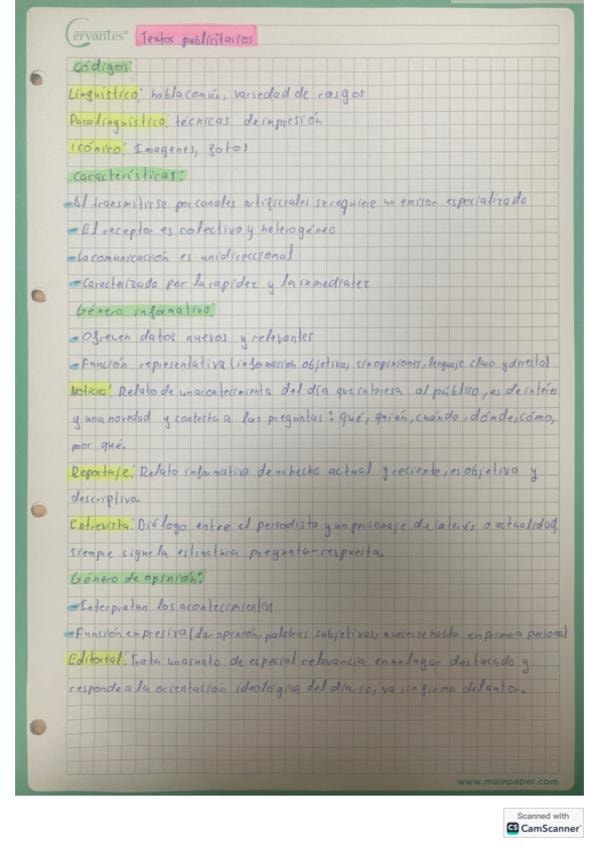 Cervantes® Textos publicitarios
Códigos:
Lingüístico: habla común, variedad de rasgos
Paralingüístico: técnicas de impresión
Icónico: Imagenes, fotos
Características:
- Al transmitirse por canales artificiales se requiere un emisor especializado
- El receptor es colectivo y heterogéneo
- La comunicación es unidireccional
- Caracterizado por la rapidez y la inmediatez
Género informativo:
- Ofrecen datos nuevos y relevantes
- Función representativa (información objetiva, sin opiniones, lenguaje claro y directo)
Noticia: Relato de un acontecimiento del día que interesa al público, es de interés
y una novedad y contesta a las preguntas: qué, quién, cuándo, dónde, cómo,
por qué.
Reportaje: Relato informativo de un hecho actual y reciente, es objetivo y
descriptivo.
Entrevista: Diálogo entre el periodista y un personaje de interés o actualidad,
siempre sigue la estructura pregunta-respuesta.
Género de opinión:
- Interpretan los acontecimientos
- Función expresiva (dar opinión, palabras subjetivas, a veces se habla en primera persona)
Editorial: Trata un asunto de especial relevancia en un lugar destacado y
responde a la orientación ideológica del diario, va sin firma del autor.
www.mainpaper.com
Scanned with
CS CamScanner